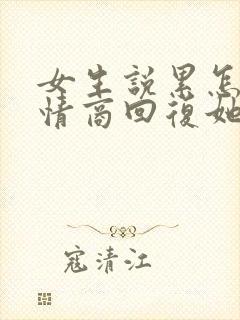 女生說累怎
情商回復她
寇清江